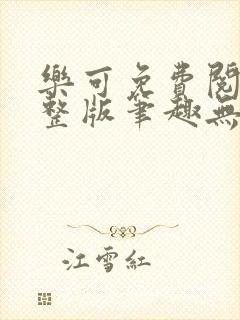 樂可免費閱
整版筆趣無
江雪紅